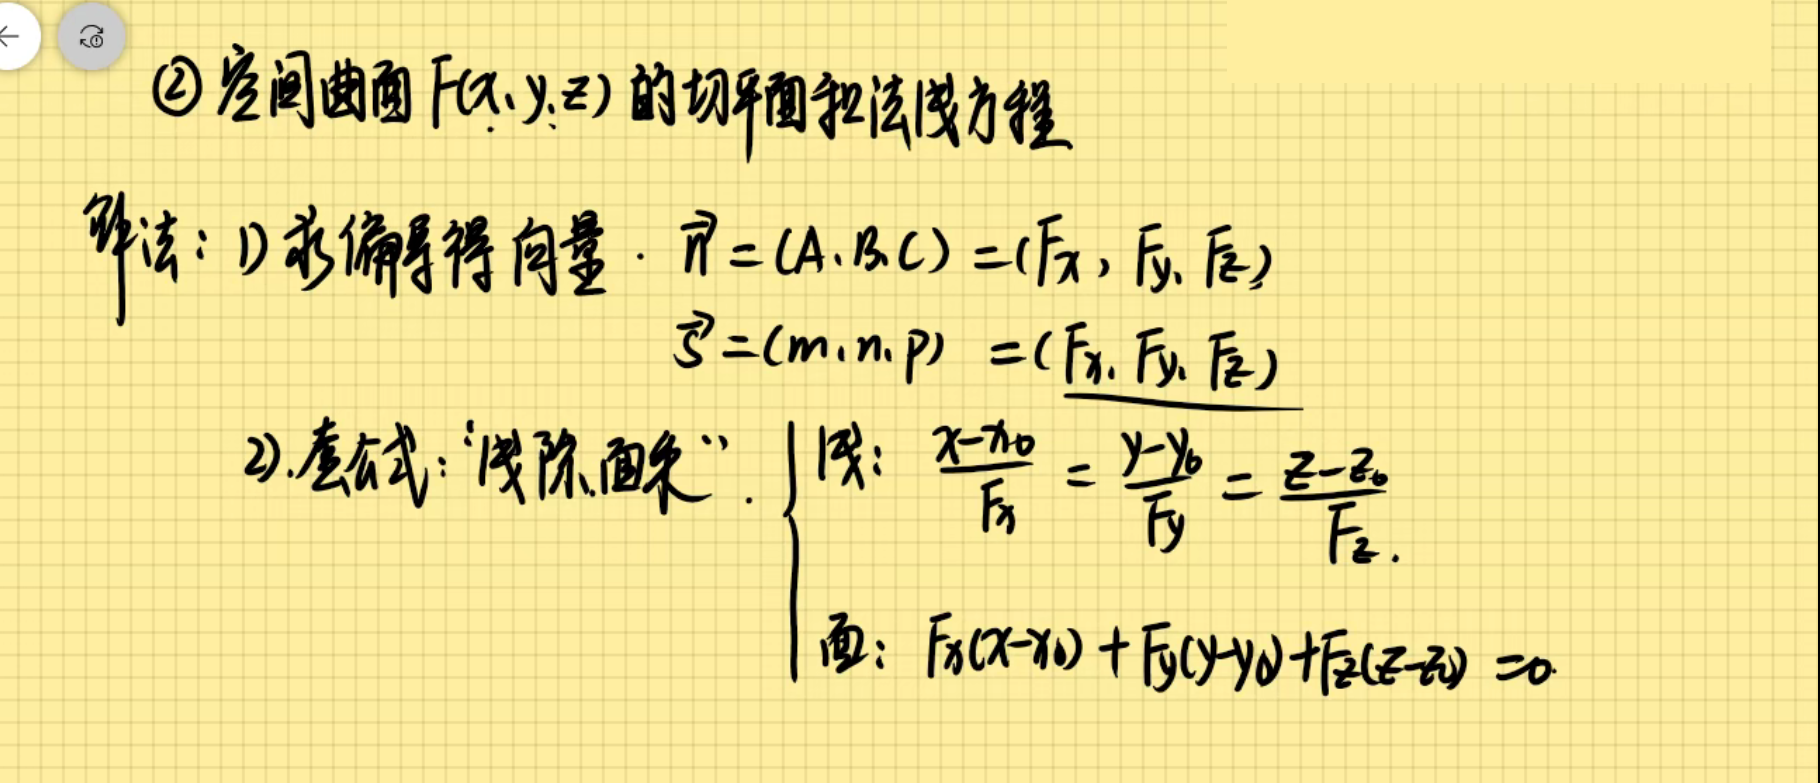 ② 空间曲面 F(x、y、z) 的切平面和法线方程
解法: 1) 求偏导得向量. n⃗ = (A、B、C) = (Fx, Fy、Fz)
s⃗ = (m、n、p) = (Fx、Fy、Fz)
2).套公式: “线除、面乘”. { 线: (x-x₀)/Fx = (y-y₀)/Fy = (z-z₀)/Fz.
面: Fx(x-x₀) + Fy(y-y₀) + Fz(z-z₀) = 0.